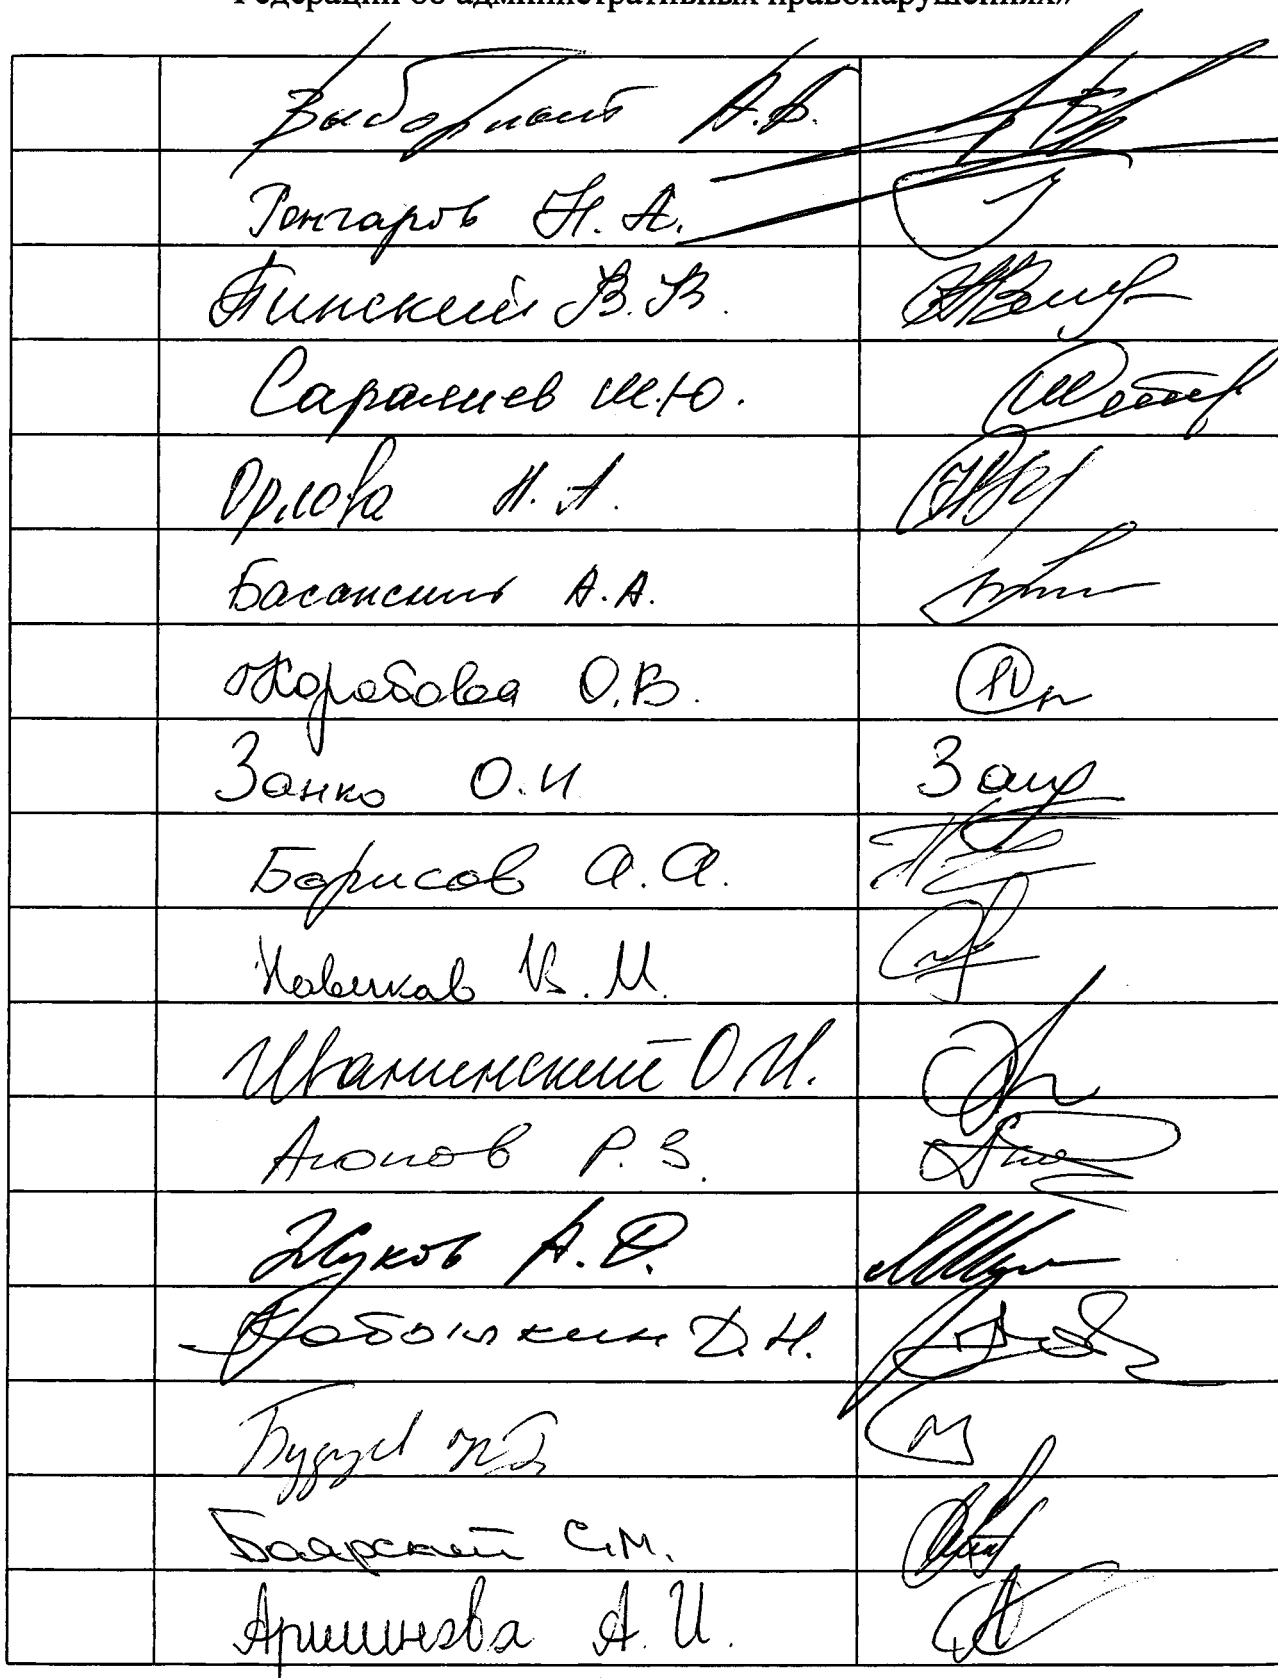 Федерации об административных правонарушениях»
Выборный А.Б.
Гончаров Н.А.
Пинский В.В.
Саралиев Ш.Ю.
Орлова Н.А.
Басанский А.А.
Коробова О.В.
Занко О.И
Борисов А.А.
Новиков В.М.
Иванинский О.И.
Аюпов Р.З.
Жуков А.Д.
Кобылкин Д.Н.
Будуев
Боярский С.М.
Аршинова А.И.